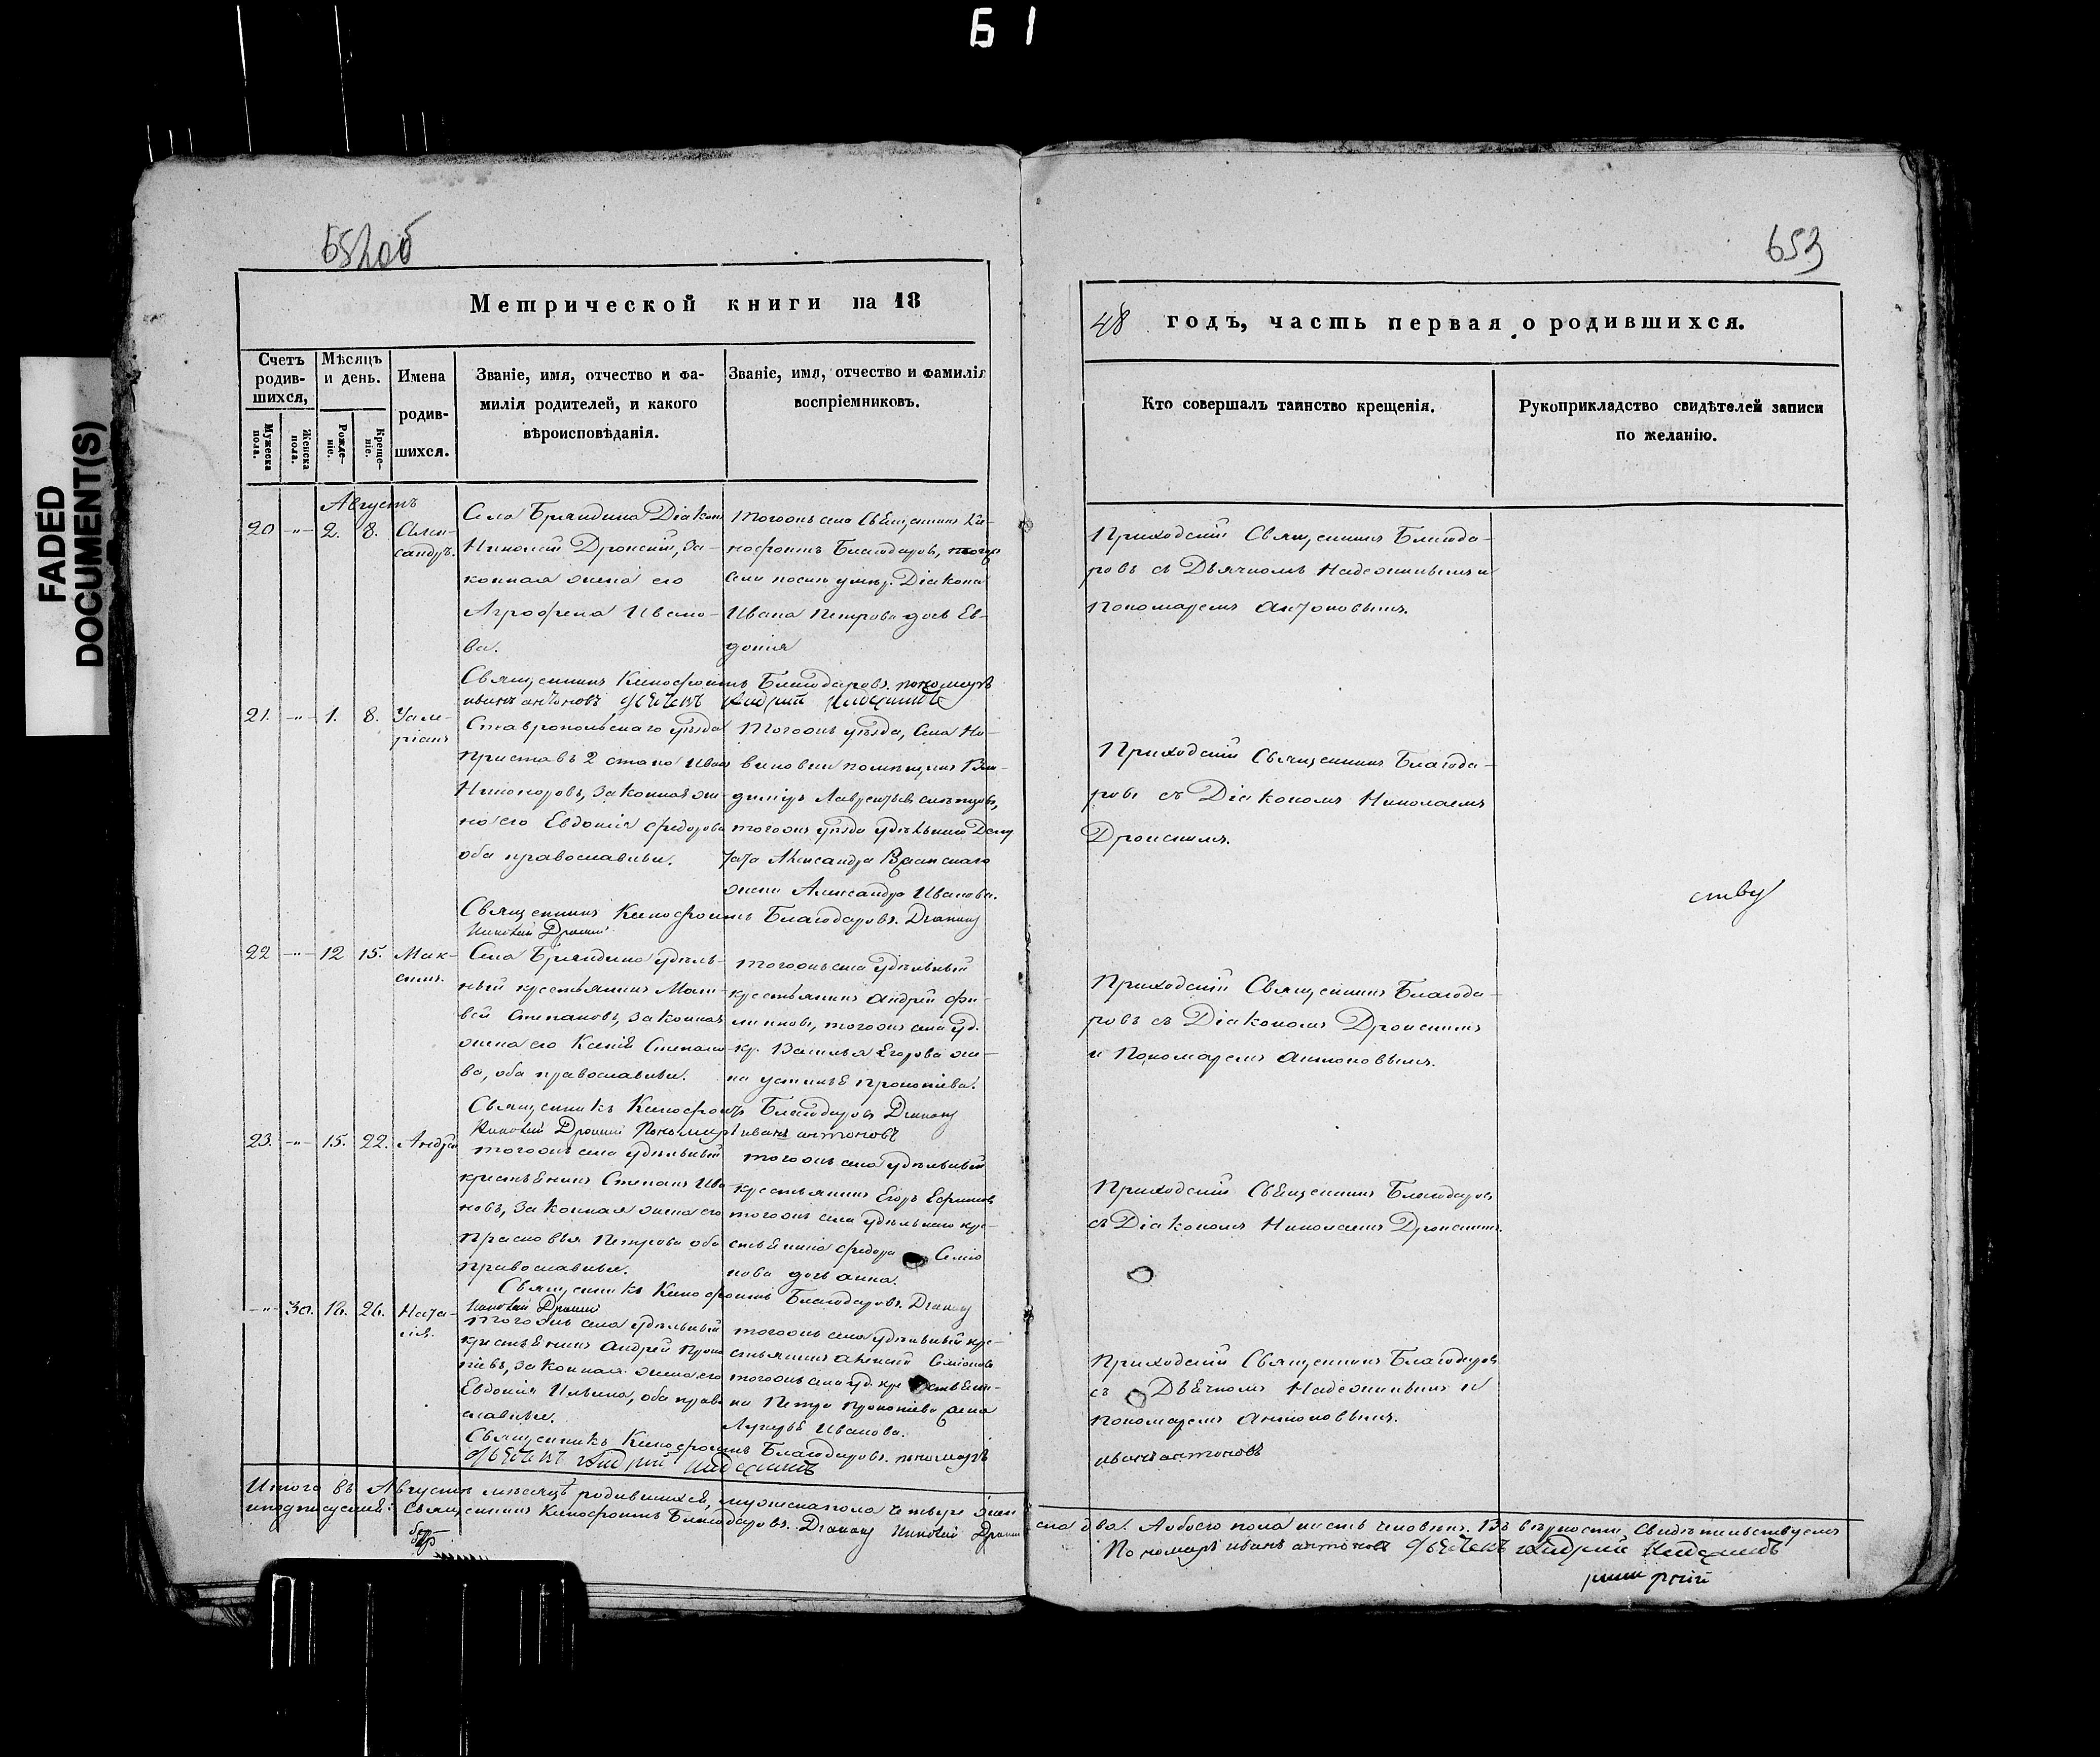 Б 1
FADED
DOCUMENT(S)
652об
653
Метрической книги на 18
Счетъ родив-шихся,
Мужеска пола.
Женска пола.
Мѣсяцъ и день.
Рожде-ніе.
Креще-ніе.
Имена родив-шихся.
Званіе, имя, отчество и фа-
милія родителей, и какого
вѣроисповѣданія.
Званіе, имя, отчество и фамилія
воспріемниковъ.
Августъ
20 -"- 2. 8. Алек-
сандръ.
Села Бряндина Діаконъ
Николай Дронскій, за-
конная жена его
Агрофена Ивано-
ва.
Тогожъ села Священникъ Ки-
нофонтъ Благодаровъ, тогожъ
села умер. Діакона
Ивана Петрова дочь Ев-
докія
Священникъ Кинофонтъ Благодаровъ. пономарь
иванъ антоновъ дьячекъ Андрей
21. -"- 1. 8.
Ставропольскаго уѣзда
Приставъ 2 стана Иванъ
Никаноровъ, законная же-
на его Евдокія Федорова
оба православные.
Тогожъ уѣзда, Села
помѣщикъ Вла-
димиръ Лаврентьевъ
тогожъ уѣзда удѣльный Депу
тата Александра
жена Александра Иванова.
Священникъ Кинофонтъ Благодаровъ. Диаконъ
Николай Дронскій
22 -"- 12 15. Мак-
симъ.
Села Бряндина удѣль-
ный крестьянинъ Мат-
вей Степановъ, законная
жена его Ксенія Степано-
ва, оба православные.
тогожъ села удѣльный
крестьянинъ Андрей Фи-
липповъ, тогожъ села уд.
кр. Василья Егорова же-
на устинья Прокопіева.
Священникъ Кинофонтъ Благодаровъ Диаконъ
Николай Дронскій Пономарь иванъ антоновъ
23. -"- 15. 22. Андрей
тогожъ села удѣльный
крестьянинъ Степанъ Ива-
новъ, законная жена его
Прасковья Петрова оба
православные.
тогожъ села удѣльный
крестьянинъ Егоръ Ефимовъ
тогожъ села удѣльнаго кре-
стьянина Федора Семіо
нова дочь анна.
Священникъ Кинофонтъ Благодаровъ. Диаконъ
Николай Дронскій
-"- 30. 26. Ната-
лія.
тогожъ села удѣльный
крестьянинъ Андрей Проко
піевъ, законная жена его
Евдокія Ильина, оба право
славные.
тогожъ села удѣльный кре-
стьянинъ Алексей Семіоновъ
тогожъ села уд. кре стьяни-
на Петра Прокопіева жена
Лукерья Иванова.
Священникъ Кинофонтъ Благодаровъ. пономарь
дьячекъ Андрей
Итого въ Августѣ мѣсяцѣ родившихся, мужеска пола четыре жен
Священникъ Кинофонтъ Благодаровъ. Диаконъ Николай Дронскій
48 годъ, часть первая о родившихся.
Кто совершалъ таинство крещенія.
Рукоприкладство свидѣтелей записи
по желанію.
Приходскій Священникъ Благода-
ровъ съ Дьячкомъ и
пономаремъ Антоновымъ.
Приходскій Священникъ Благода-
ровъ съ Діакономъ Николаемъ
Дронскимъ.
ству
Приходскій Священникъ Благода-
ровъ съ Діакономъ Дронскимъ
и Пономаремъ Антоновымъ.
Приходскій Священникъ Благодаровъ
съ Діакономъ Николаемъ Дронскимъ.
Приходскій Священникъ Благодаровъ
съ Дьячкомъ и
пономаремъ Антоновымъ.
иванъ антоновъ
ска два. Обоего пола шесть человекъ. Въ верности свидѣтельствуемъ
Пономарь иванъ антоновъ дьячекъ Андрей